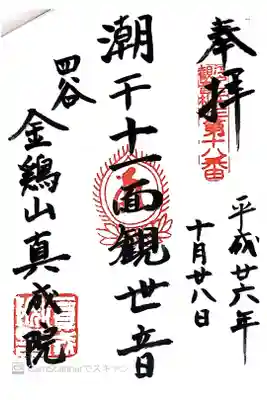 奉拝
第十八番
平成廿六年
十月廿八日
潮干十一面観世音
四谷
金鶏山真成院
CamScannerでスキャン